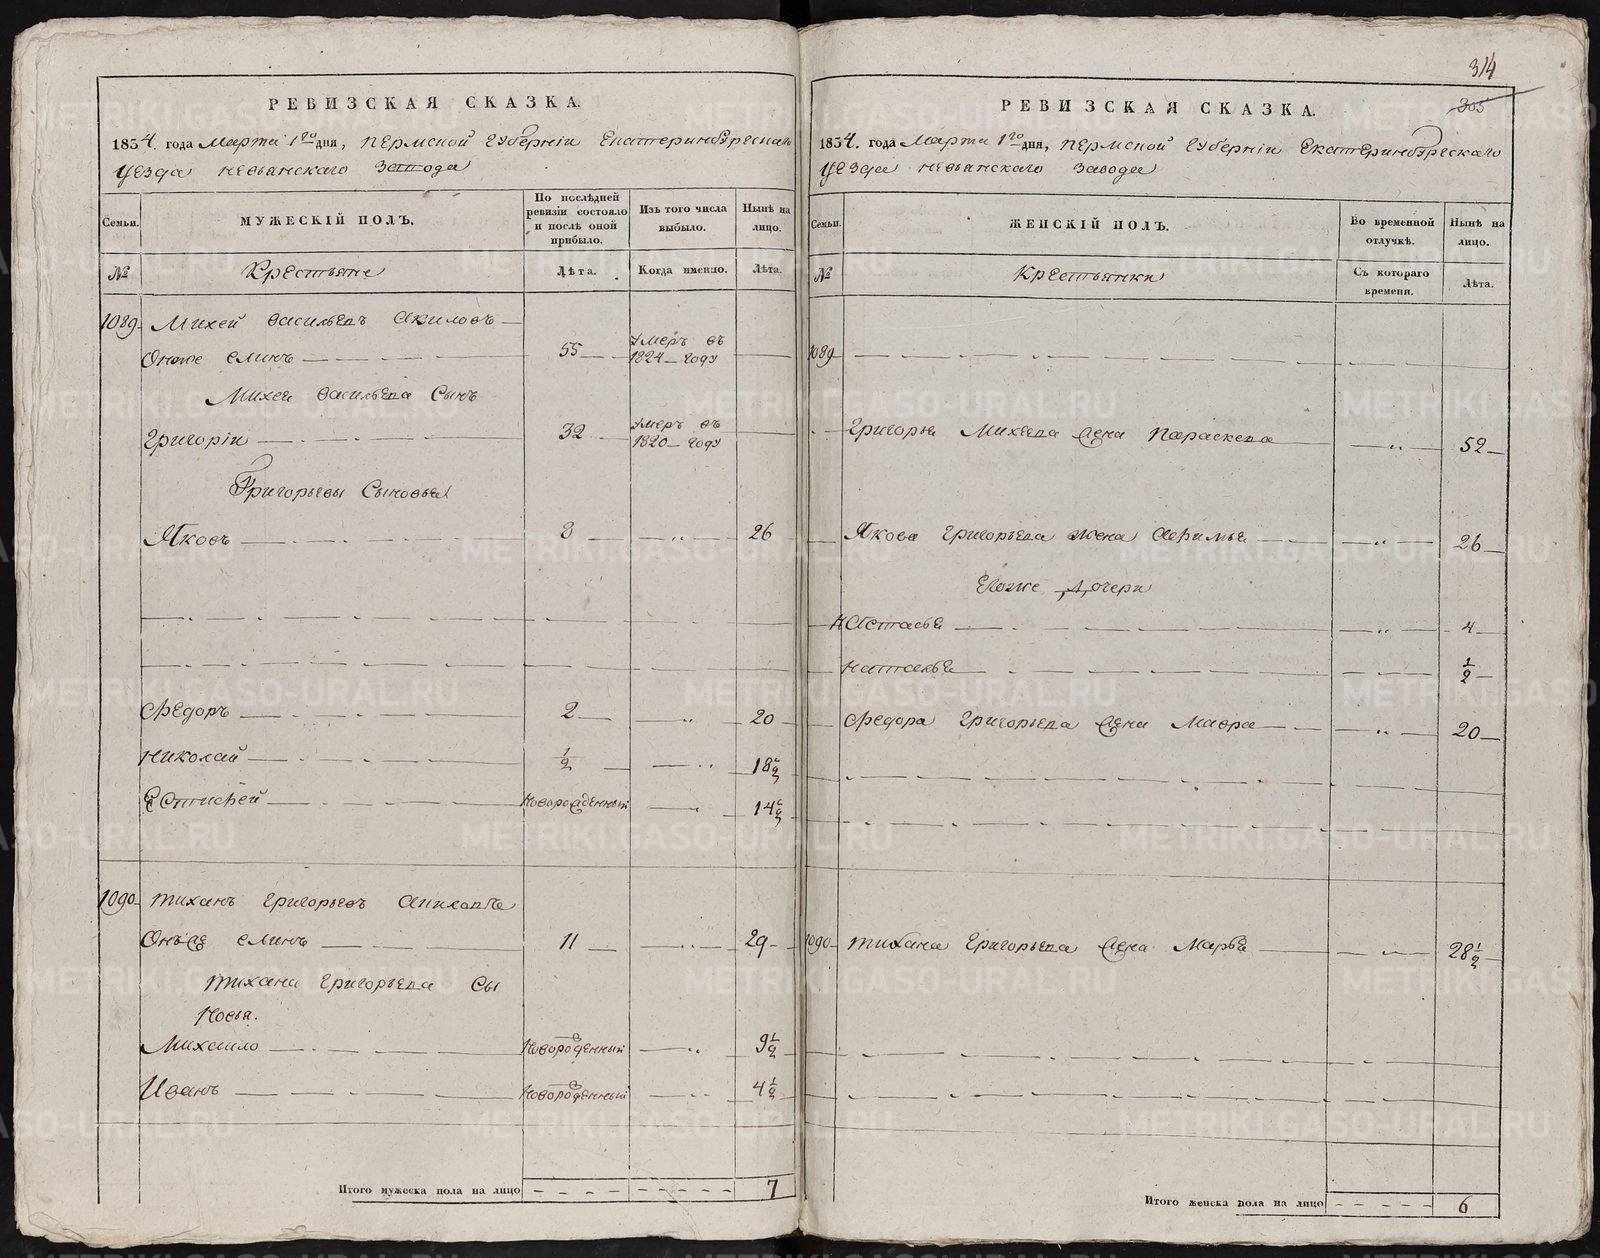 РЕВИЗСКАЯ СКАЗКА.
1834. года Марта 1го дня, Пермской Губерніи Екатеринбургскаго
уезда Невьянскаго Завода
Семьи.
МУЖЕСКІЙ ПОЛЪ.
По послѣдней ревизіи состояло и послѣ оной прибыло.
Изъ того числа выбыло.
Нынѣ на лицо.
№
Крестьяне
Лѣта.
Когда именно.
Лѣта.
1089 Михей Васильевъ
Онже 55 Умеръ въ 1824 году
Михея Васильева Сынъ
Григоріи 32 Умеръ въ 1820 году
Григорьевы Сыновья
Яковъ 8 „ 26
Федоръ 2 „ 20
Николай 1/2 „ 18 1/2
Евстифей Новорожденный „ 14 1/2
1090 Тиханъ Григорьевъ
Онже 11 „ 29
Тихана Григорьева Сы
новья.
Михаило Новорожденный „ 9 1/2
Иванъ Новорожденный „ 4 1/2
Итого мужеска пола на лицо 7
314
305
РЕВИЗСКАЯ СКАЗКА.
1834. года Марта 1го дня, Пермской Губерніи Екатеринбургскаго
уезда Невьянскаго Завода
Семьи.
ЖЕНСКІЙ ПОЛЪ.
Во временной отлучкѣ.
Нынѣ на лицо.
№
Крестьянки
Съ котораго времени.
Лѣта.
1089
Григорья Михеева жена Параскева „ 52
Якова Григорьева жена Афимья „ 26
Егоже Дочери
Настасья „ 4
Наталья 1/2
Федора Григорьева жена Мавра „ 20
1090 Тихана Григорьева жена Марья „ 28 1/2
Итого женска пола на лицо 6
METRIKI.GASO-URAL.RU